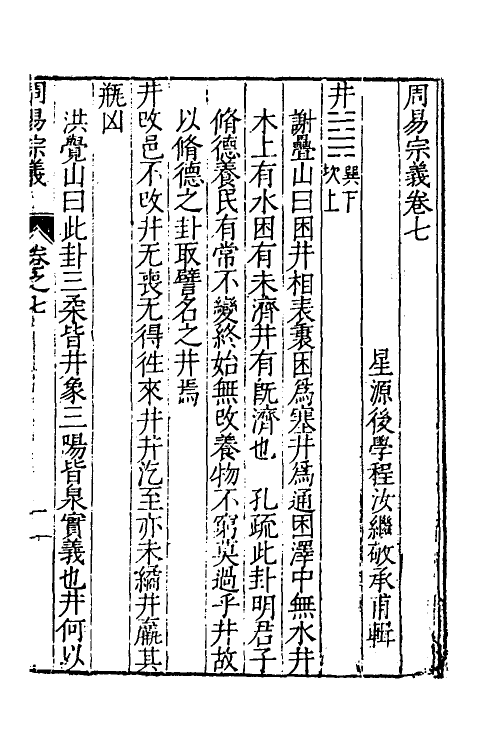 周易宗義卷七
星源後學程汝繼敬承甫輯
井䷯巽下坎上
謝疊山曰困井相表裏困爲塞井爲通困澤中無水井
木上有水困有未濟井有旣濟也 孔疏此卦明君子
脩德養民有常不變終始無改養物不窮莫過乎井故
以脩德之卦取譬名之井焉
井改邑不改井无喪无得徃來井井汔至亦未繘井羸其
瓶凶
洪覺山曰此卦三柔皆井象三陽皆泉實義也井何以
周易宗義 卷之七 一